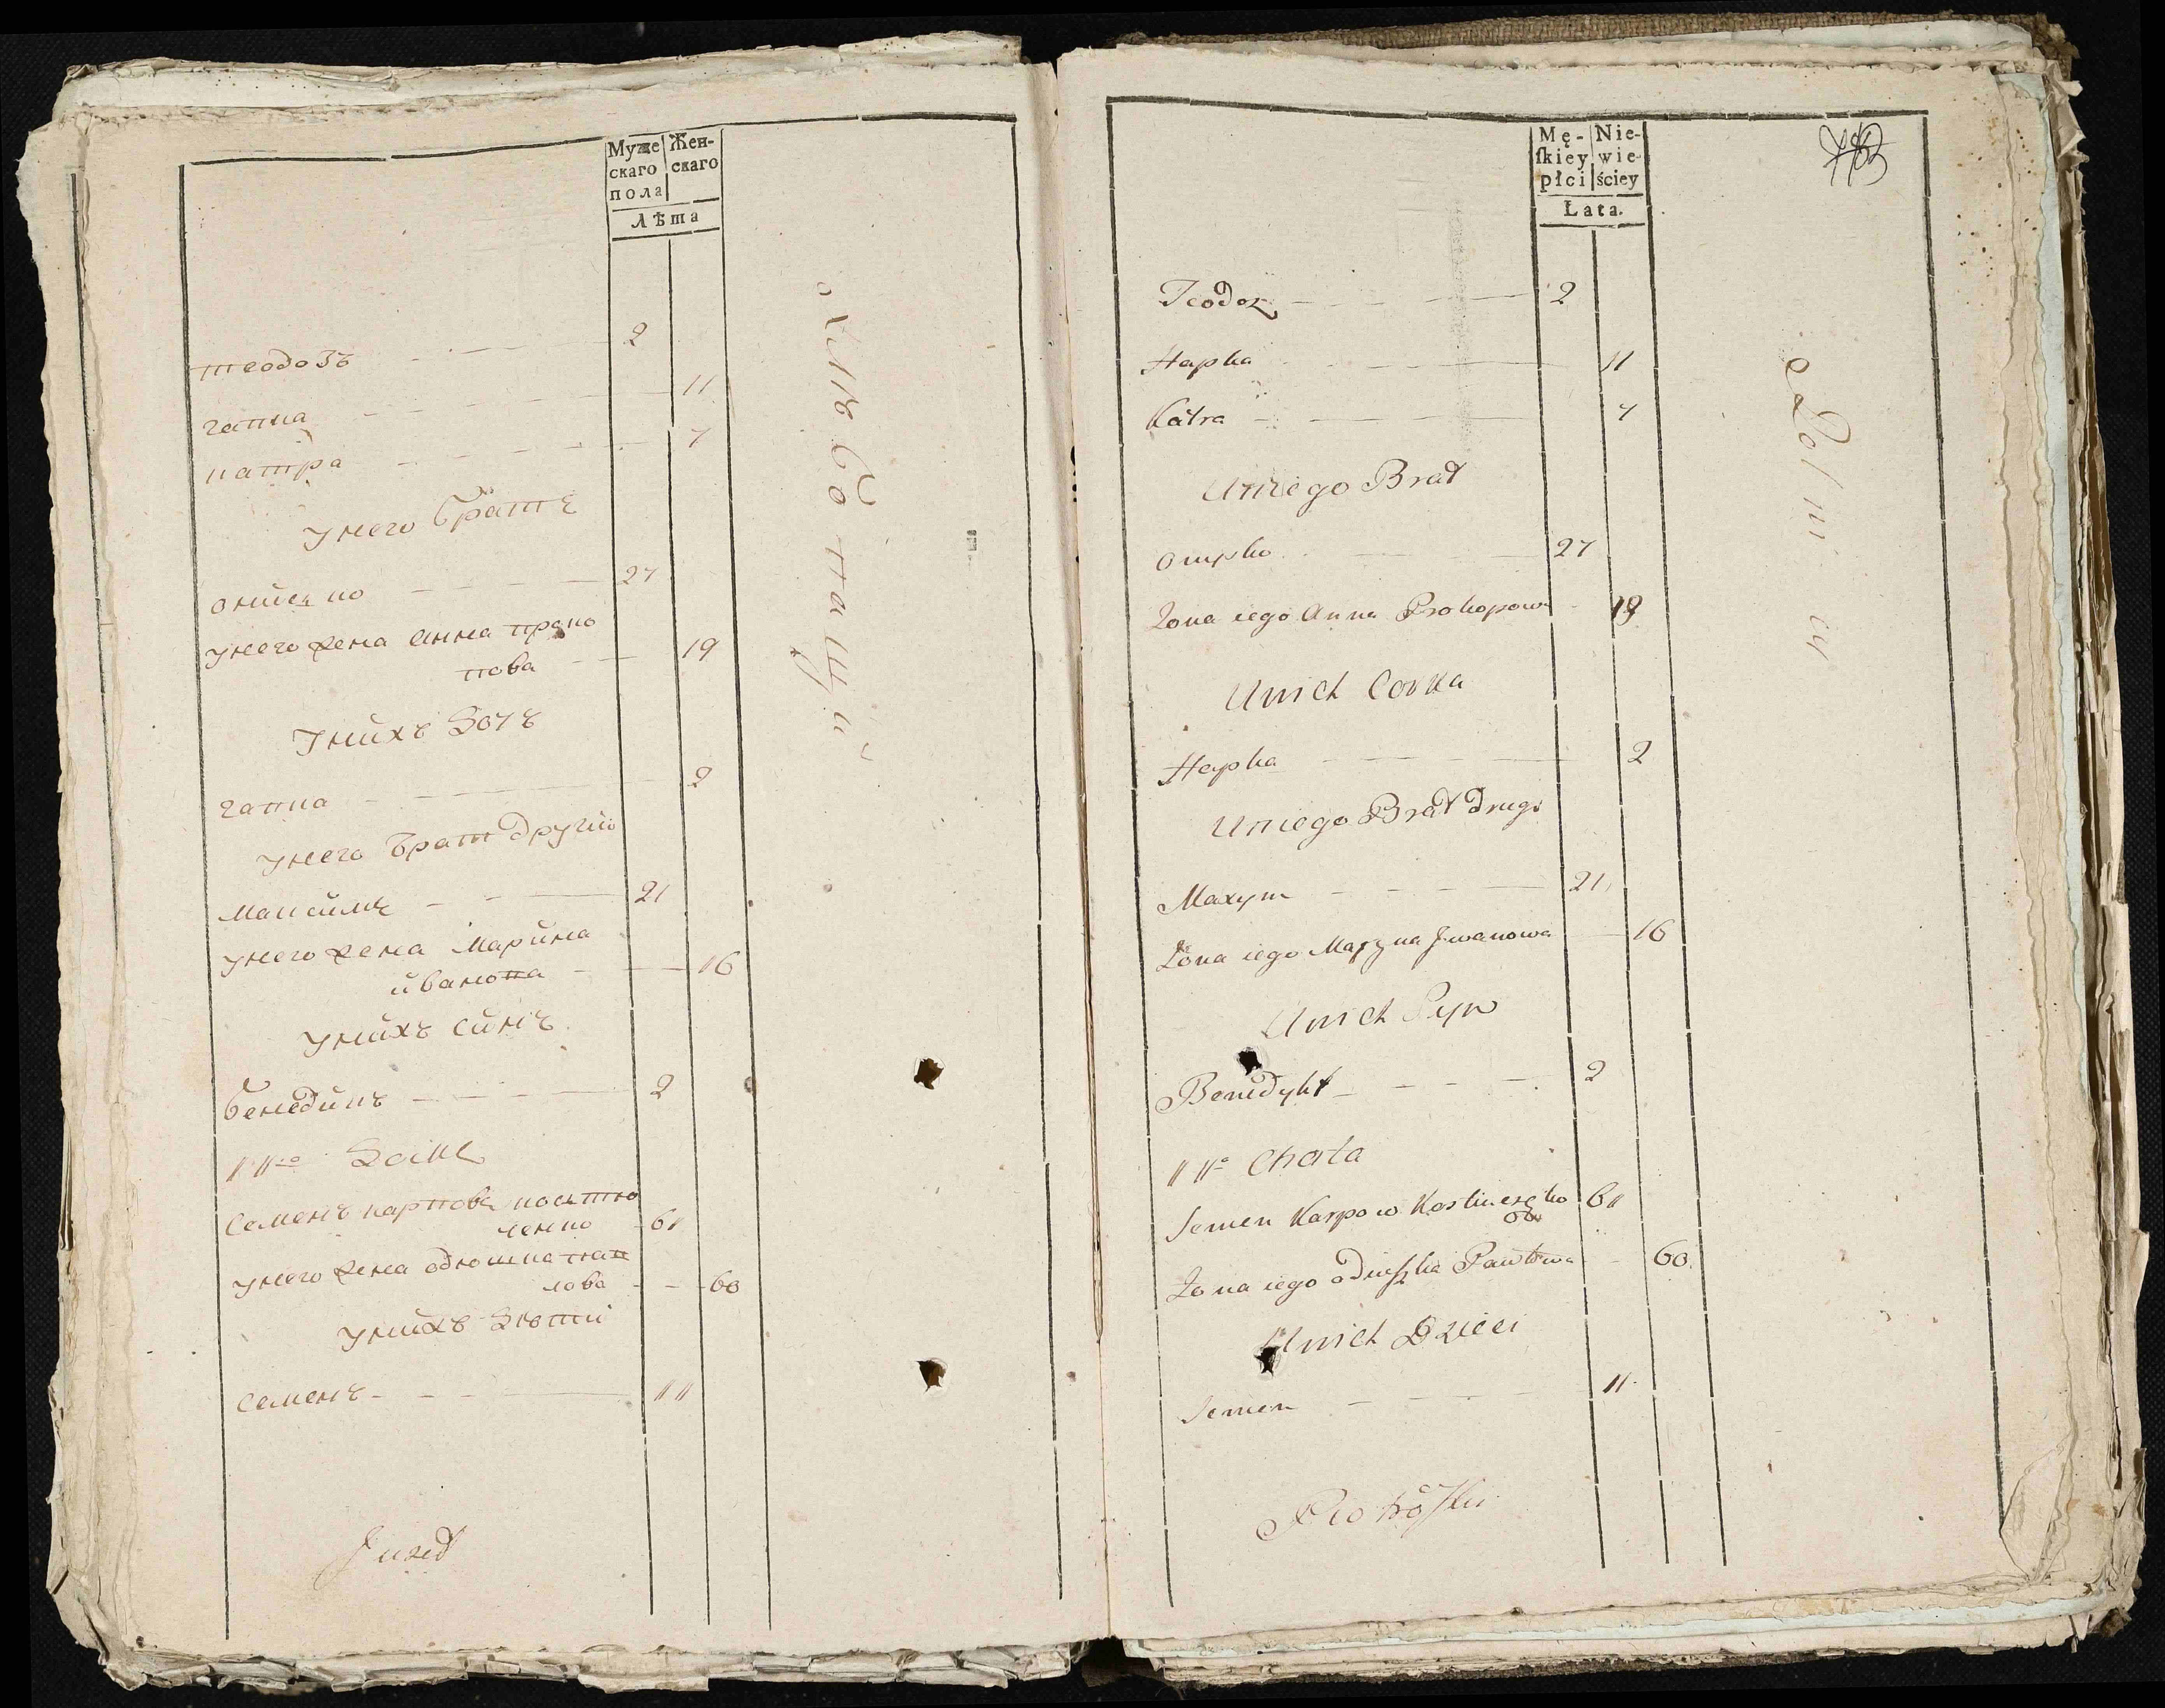 Муже
скаго
пола
Жен-
скаго
Лѣта
теодозъ 2
гапка 11
катра 7
унего братъ
онисько 27
унего жена анна проко
пова 19
унихъ доч
гапка 2
унего братъ другий
максимъ 21
унего жена марина
иванова 16
унихъ синъ
бенедикъ 2
семенъ карпова костю
ченко 61
унего жена одюшка пав
лова 60
унихъ дѣти
семенъ 11
хлѣбопащци
Mę-
ſkiey
płci
Nie-
wie-
ściey
Lata.
Teodoz 2
Hapka 11
Katra 7
Uniego Brat
27
Zona iego Anna Prokopowa 19
Unich Corka
Hapka 2
Uniego Brat Drugi
Maxym 21
Zona iego Maryna Jwanowa 16
Unich Syn
Benedykt 2
11° Chata
Semen Karpow 61
Zona iego Pawlowa 60
Unich Dzieci
Semen 11
Rolnicy